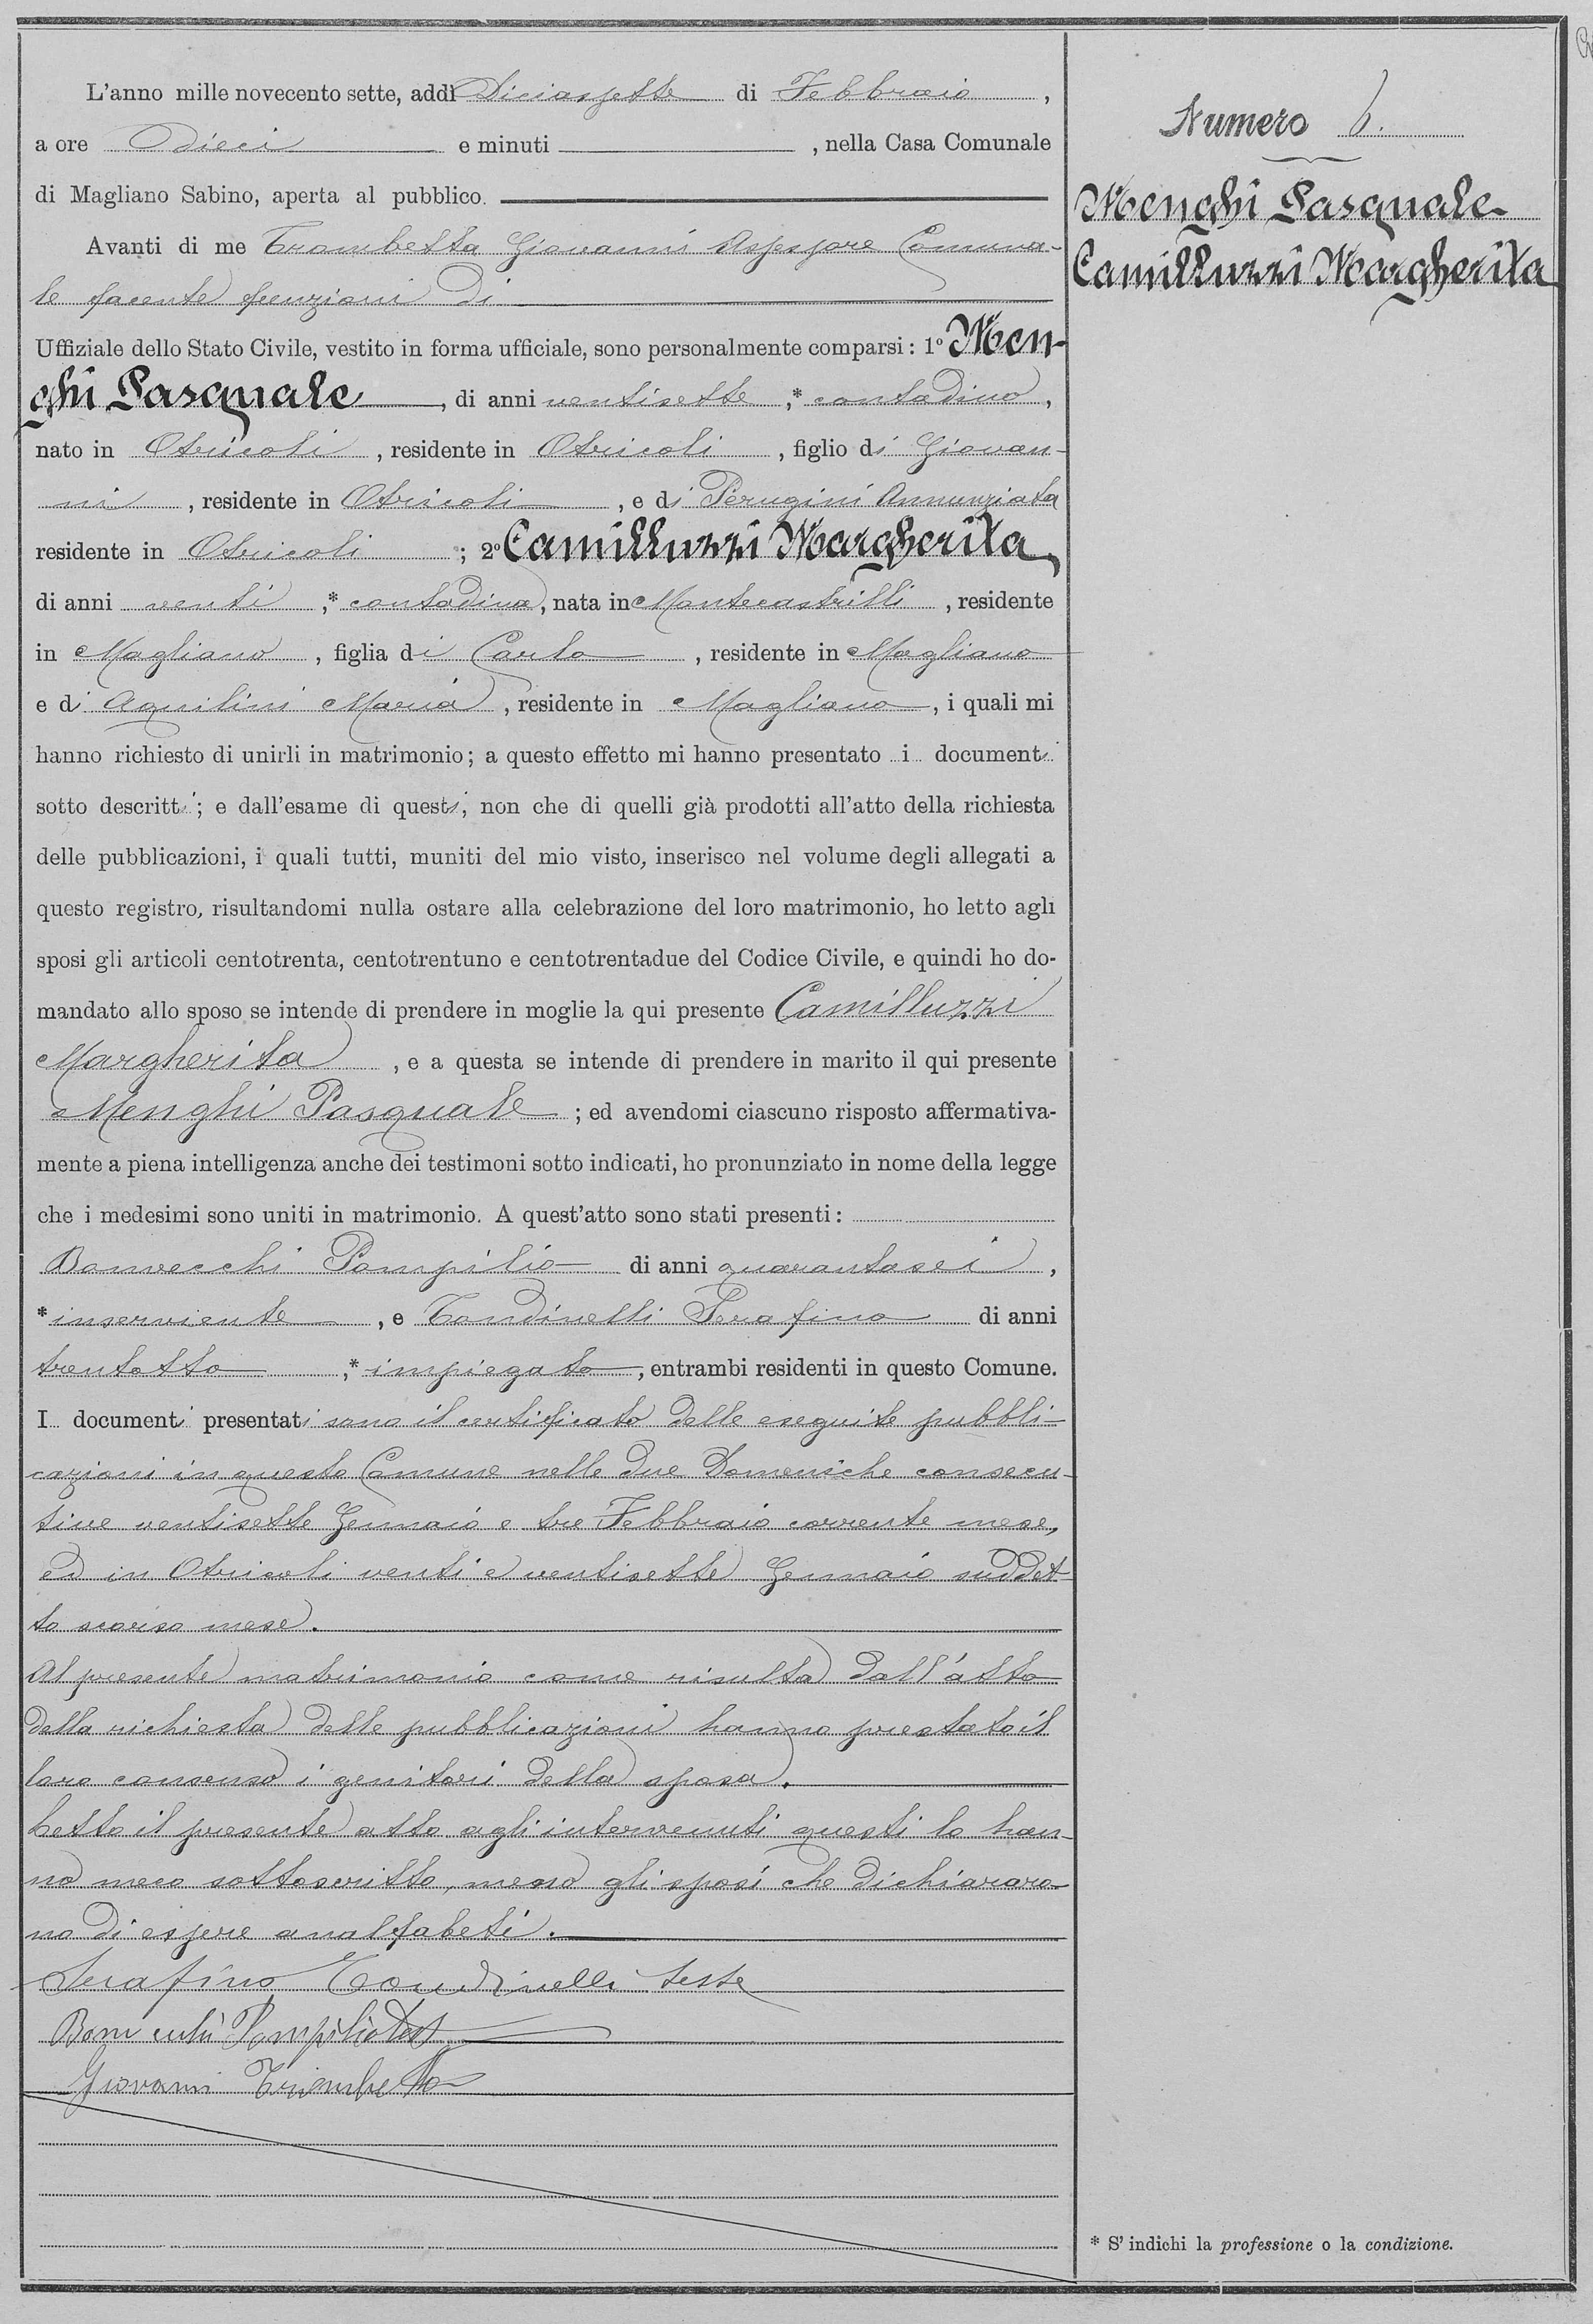 L'anno mille novecento sette, addì Diciassette di Febbraio,
a ore Dieci e minuti , nella Casa Comunale
di Magliano Sabino, aperta al pubblico.
Avanti di me Trombetta Giovanni Assessore Comuna-
le facente funzioni di
Uffiziale dello Stato Civile, vestito in forma ufficiale, sono personalmente comparsi: 1º Men-
ghi Pasquale, di anni ventisette,* contadino,
nato in Otricoli, residente in Otricoli, figlio di Giovan-
ni, residente in Otricoli, e di Perugini Annunziata
residente in Otricoli; 2º Camilluzzi Margherita,
di anni venti,* contadina, nata in Montecastrilli, residente
in Magliano, figlia di Carlo, residente in Magliano
e di Aquilini Maria, residente in Magliano, i quali mi
hanno richiesto di unirli in matrimonio; a questo effetto mi hanno presentato i documenti
sotto descritti; e dall'esame di questi, non che di quelli già prodotti all'atto della richiesta
delle pubblicazioni, i quali tutti, muniti del mio visto, inserisco nel volume degli allegati a
questo registro, risultandomi nulla ostare alla celebrazione del loro matrimonio, ho letto agli
sposi gli articoli centotrenta, centotrentuno e centotrentadue del Codice Civile, e quindi ho do-
mandato allo sposo se intende di prendere in moglie la qui presente Camilluzzi
Margherita, e a questa se intende di prendere in marito il qui presente
Menghi Pasquale; ed avendomi ciascuno risposto affermativa-
mente a piena intelligenza anche dei testimoni sotto indicati, ho pronunziato in nome della legge
che i medesimi sono uniti in matrimonio. A quest'atto sono stati presenti:
Bonvecchi Pompilio di anni quarantasei,
* inserviente, e Tondinelli Serafino di anni
trentotto,* impiegato, entrambi residenti in questo Comune.
I documenti presentati sono il certificato delle eseguite pubbli-
cazioni in questo Comune nelle due Domeniche consecu-
tive ventisette Gennaio e tre Febbraio corrente mese,
ed in Otricoli venti e ventisette Gennaio suddet-
to scorso mese.
Al presente matrimonio come risulta dall'atto
della richiesta delle pubblicazioni hanno prestato il
loro consenso i genitori della sposa.
Letto il presente atto agli intervenuti questi lo han-
no meco sottoscritto, meno gli sposi che dichiararo-
no di essere analfabeti.
Serafino Tondinelli teste
Bonvechi Pompilio test
Giovanni Trombetta
Numero 6.
Menghi Pasquale
Camilluzzi Margherita
* S'indichi la professione o la condizione.